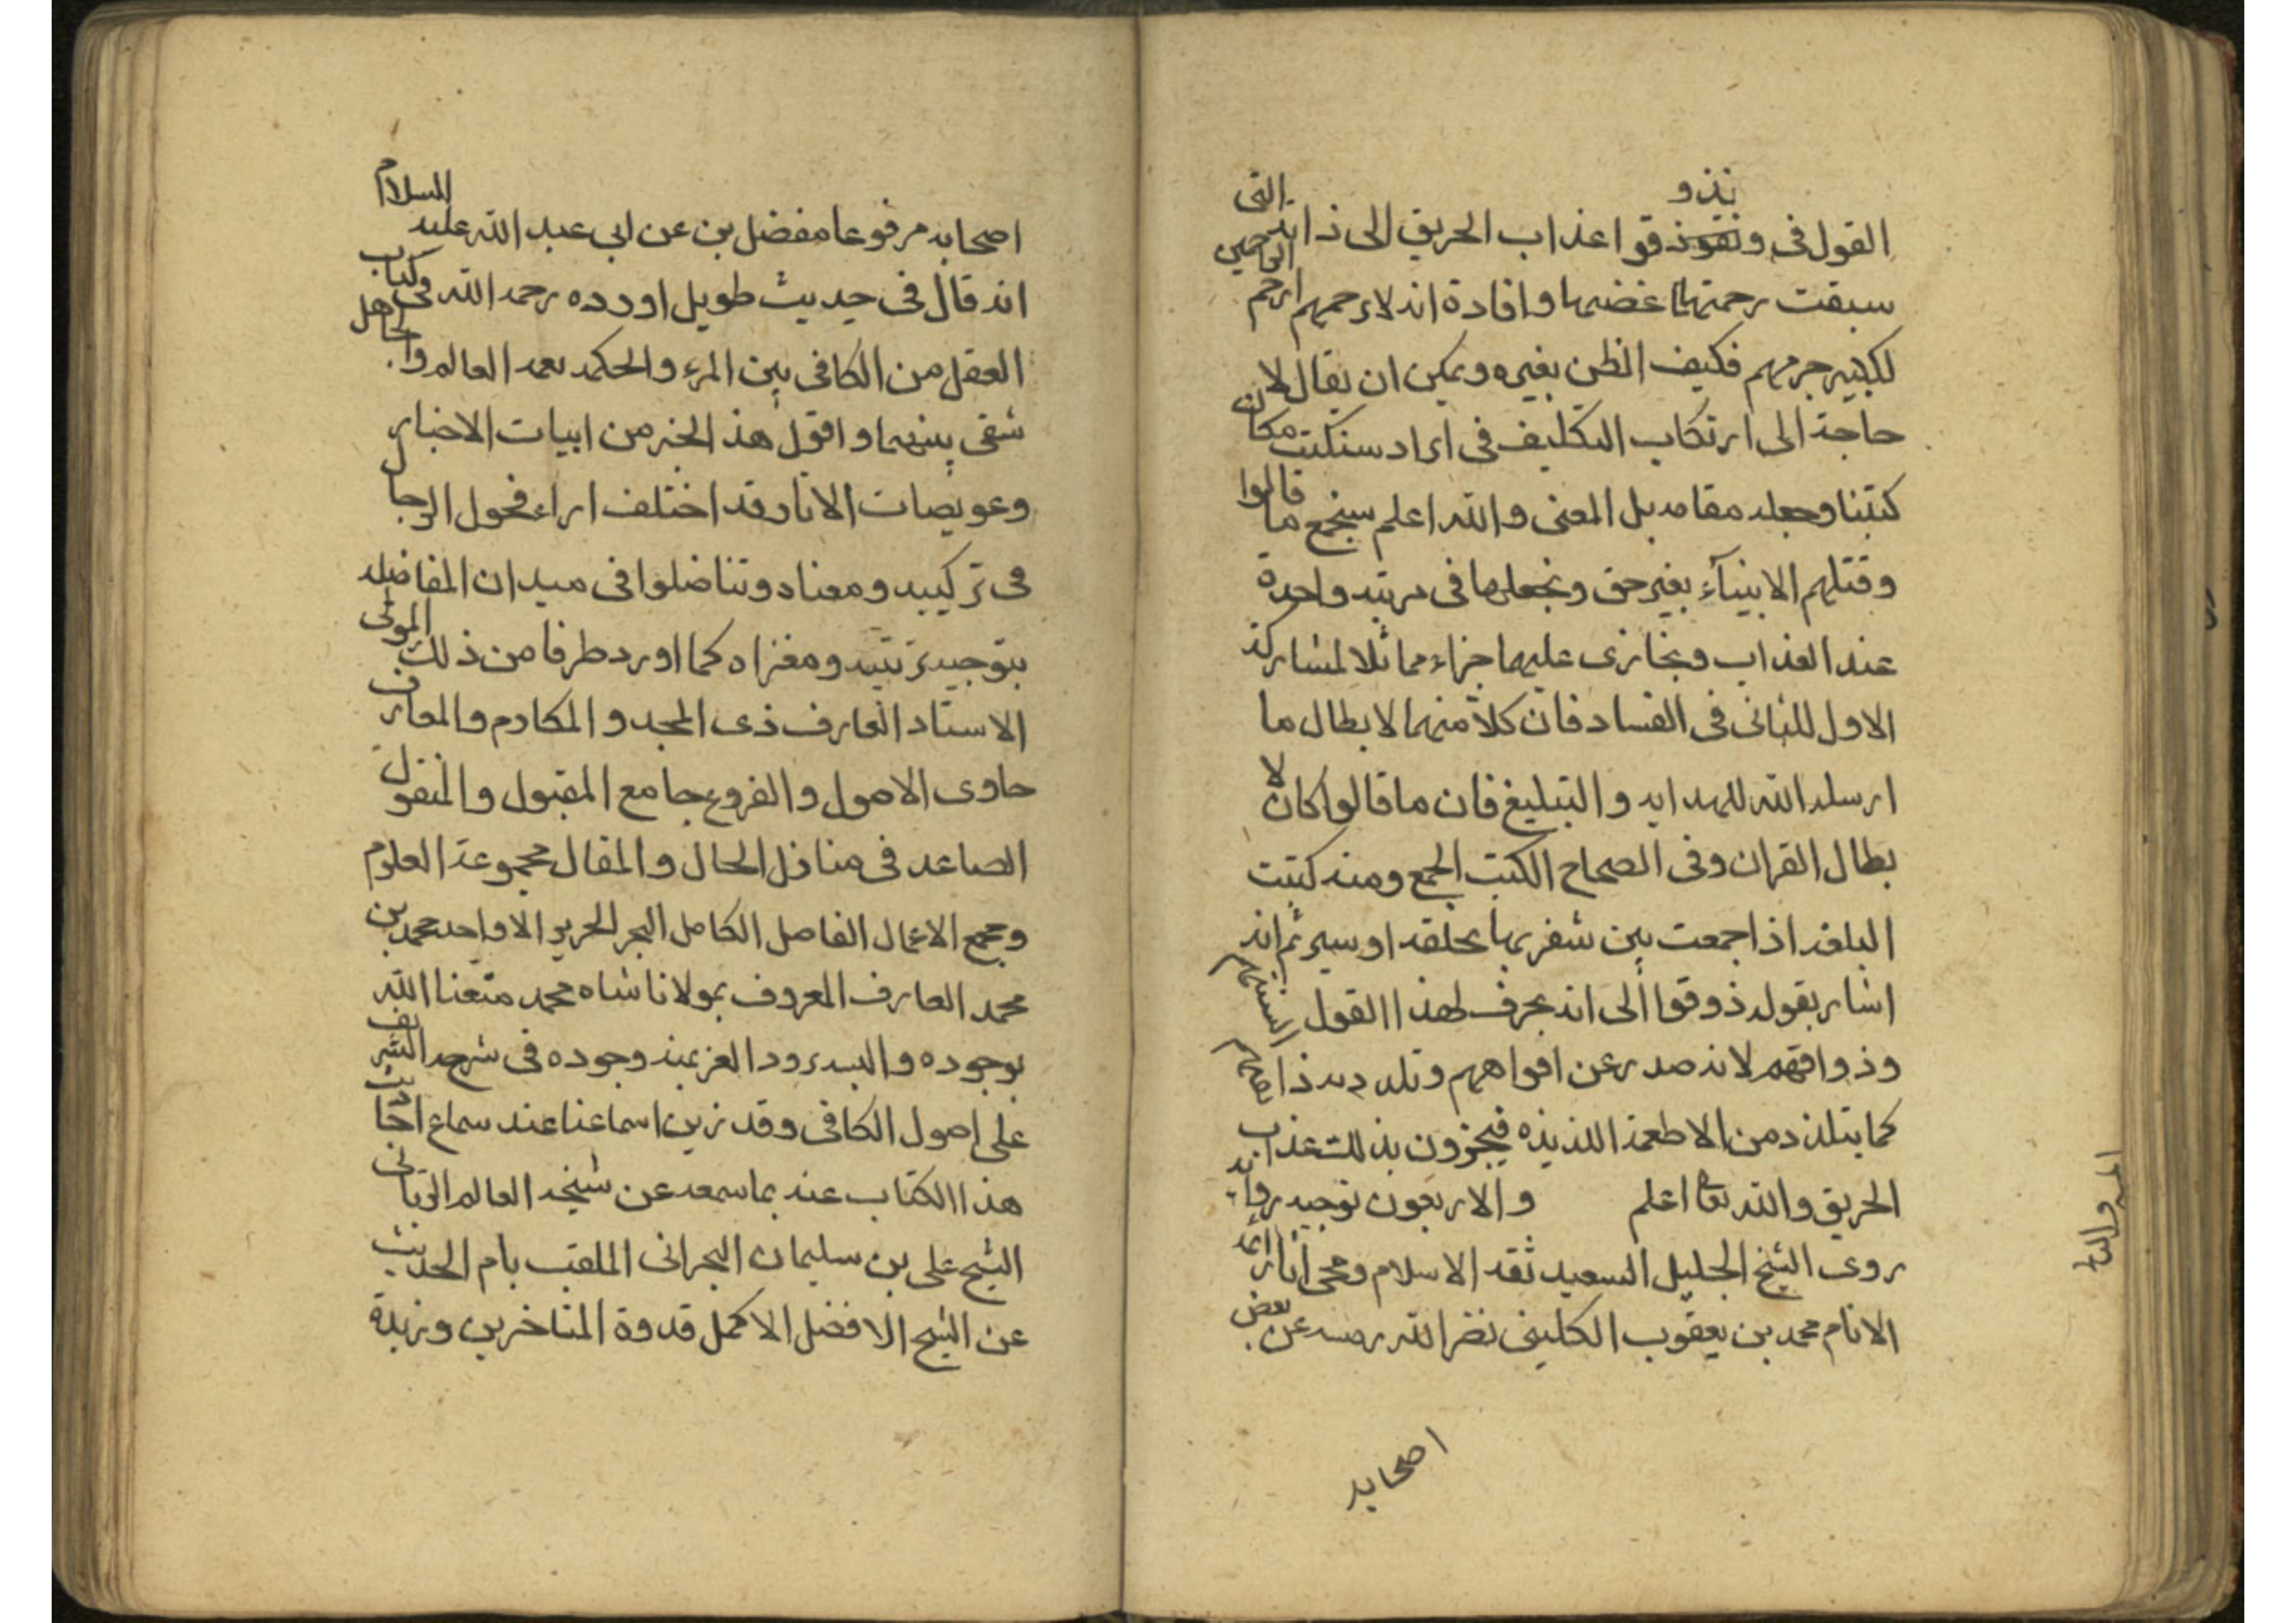 القول فى و نذوقوا عذاب الحريق الى ذاته التى
سبقت رحمتها غضبها وافادة انه لا يرحمهم ارحم الراحمين
لكبير جرمهم فكيف الظن بغيره ويمكن ان يقال لا
حاجة الى ارتكاب التكليف فى ايراد سنكتب مكان
كتبنا وجعله مقامه بل المعنى والله اعلم سنجمع ما قالوا
وقتلهم الانبيآء بغير حق ونجعلها فى مرتبه واحدة
عند العذاب ونجازى عليهما جزاء مماثلا لمشاركة
الاول للثانى فى الفساد فان كلا منهما لابطال ما
ارسله الله للهدايه والتبليغ فان ما قالوا كان لا
بطال القران وفى الصحاح الكتب الجمع ومنه كتبت
البلغه اذا جمعت بين شفريها بحلقه او سير ثم انه
اشار بقوله ذوقوا الى انه بحرف لهذا القول السنتهم
وذواقهم لانه صدر عن افواههم وتلذذ به ذا
كما يتلذذ من الاطعمة اللذيذه فيجزون بذلك عذاب
الحريق والله تعا اعلم والاربعون توجيه رواية
روى الشيخ الجليل السعيد ثقه الاسلام ومحى اثار ائمة
الانام محمد بن يعقوب الكلينى نضر الله رمسه عن بعض
اصحابه
اصحابه مرفوعا مفضل بن عن ابى عبد الله عليه السلام
انه قال فى حديث طويل اورده رحمه الله فى كتاب
العقل من الكافى بين المرء والحكمه نعمه العالم والجاهل
شقى بينهما واقول هذ الخبر من ابيات الاخبار
وعويصات الاثار وقد اختلف اراء فحول الرجال
فى تركيبه ومعناه وتناضلوا فى ميدان المفاضله
بتوجيه ترتيبه ومغزاه كما اورد طرفا من ذلك المولى
الاستاد العارف ذى المجد و المكارم والمعارف
حاوى الاصول والفروع جامع المقبول والمنقول
الصاعد فى منازل الحال والمقال مجموعة العلوم
ومجمع الاعمال الفاضل الكامل البحر الحرير الاواحد محمد بن
محمد العارف المعروف بمولانا شاه محمد متعنا الله
بوجوده والبسه برود العز بمنه وجوده فى شرحه الشريف
على اصول الكافى وقد زين اسماعنا عند سماع احاديث
هذا الكتاب عنه بما سمعه عن شيخه العالم الربانى
الشيخ على بن سليمان البحرانى الملقب بام الحديث
عن الشيخ الافضل الاكمل قدوة المتاخرين وزبدة